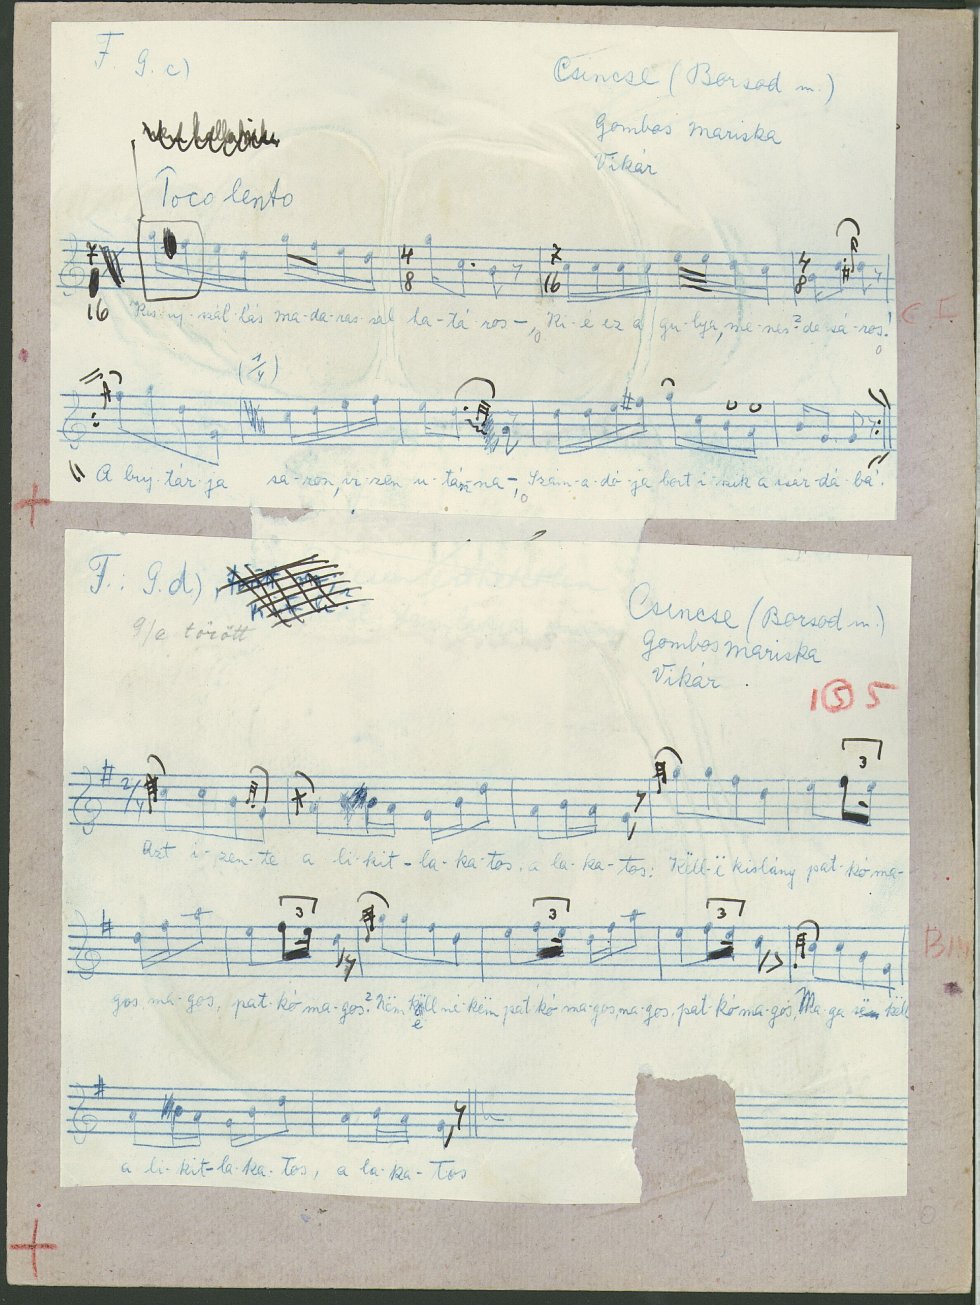 F. 9.c)
Csincse (Borsod m.)
Gombos Mariska
Vikár
Poco lento
7 16 4 8 7 16 4 8
Kis-uj-szál-lás ma-da-ras-sal ha-tá-ros-, Ki-é ez a gu-lya, me-nes? de sá-ros!
(1/4)
A buj-tár-ja sá-ron, ir-zen u-tán-na-, Szám-a-dó-ja bort i-szik a csár-dá-bá.
F. 9.d)
9/a törött
Csincse (Borsod m.)
Gombos Mariska
Vikár
1 5 5
2/4 3
Azt i-zen-te a li-kit-la-ka-tos, a la-ka-tos: Këll-ë kislány pat-kó ma-
3 3 3
gos ma-gos, pat-kó ma-gos? Nëm këll né-këm pat-kó ma-gos, ma-gos, pat-kó ma-gos, Ma-ga këll
a li-kit-la-ka-tos, a la-ka-tos